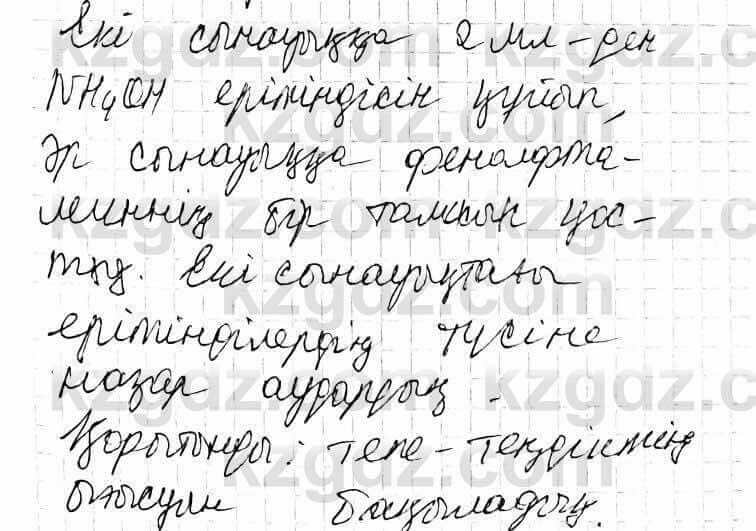 Екі сынауыққа 2 мл-ден
NH₄OH ерітіндісін құйып,
әр сынауыққа фенолфта-
леиннің бір тамшын қос-
тық. Екі сынауықтағы
ерітінділердің түсіне
назар аудардық.
Қорытынды: тепе-теңдіктің
ығысуын бақыладық.